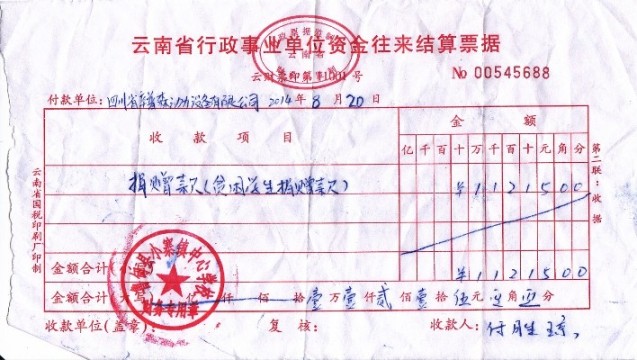 云南省行政事业单位资金往来结算票据
云财票印第 号
No 00545688
付款单位: 四川省 设备有限公司 2014年8月20日
收款项目 金额
亿 千 百 十 万 千 百 十 元 角 分
捐赠款(贫困学生捐赠款) ¥ 1 1 2 1 5 0 0
金额合计(小写) ¥ 1 1 2 1 5 0 0
金额合计(大写) 亿 仟 佰 拾壹万壹仟贰佰壹拾伍元 角 分
收款单位(盖章): 复核: 收款人:
第二联:收据
云南省国税印刷厂印制
小寨镇中心学校
财务专用章